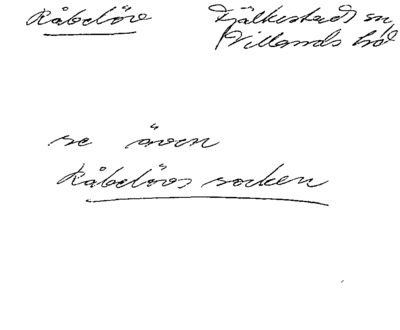 Råbelöve Fjälkestads sn,
Villands hd
se även
Råbelövs socken